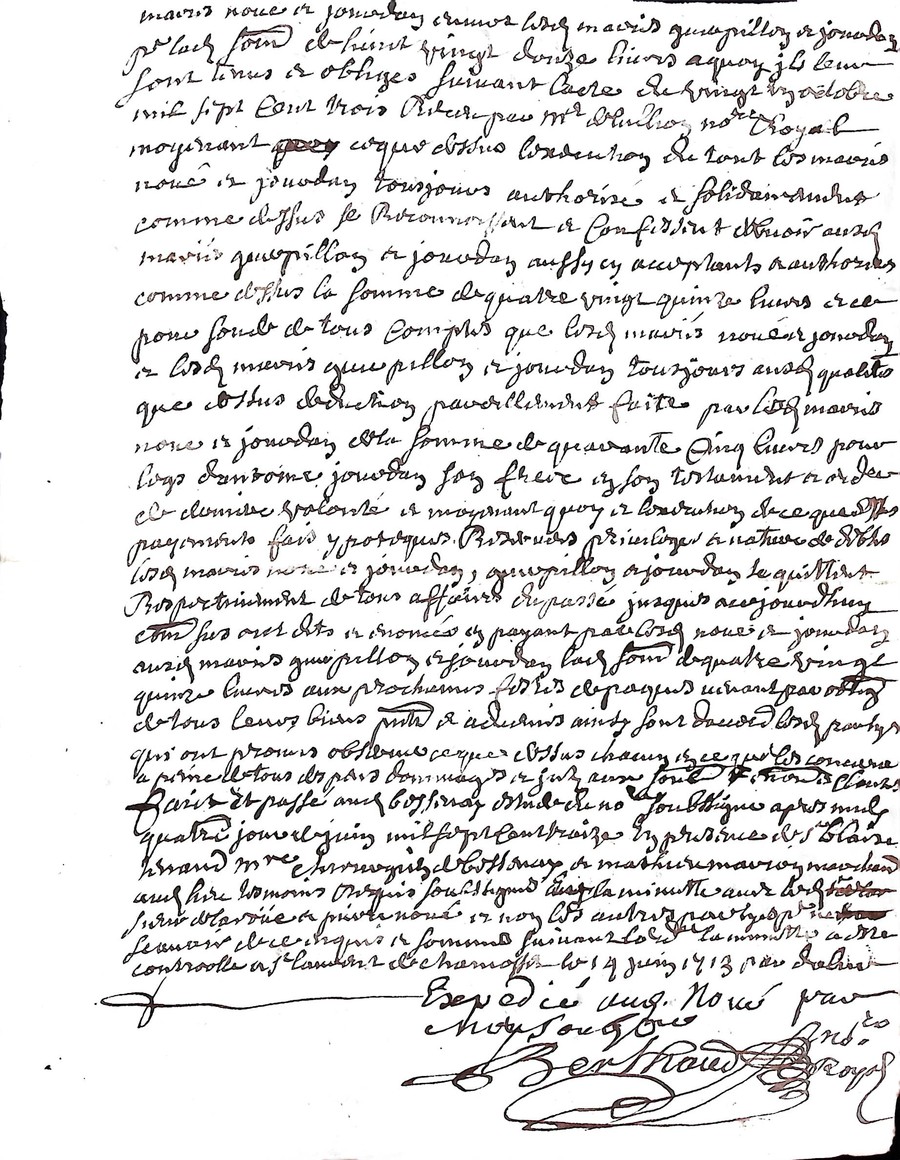 mariés noué et jourdan envers lesd mariés guepillon et jourdan
pr lad som de huict vingt douze livres a quoy ils leur
sont tenus et obligés suivant lacte du vingt octobre
mil sept cent trois Receu par Mr nore Royal
moyenant ce que dessus lexecution du tout les mariés
noué et jourdan tousjours authorisé et solidairement
comme dessus se Reconnoissent et Confessent debvoir ausd
mariés guepillon et jourdan aussy acceptants et authorisés
comme dessus la somme de quatre vingt quinze livres et ce
pour soude de tous Comptes que lesd mariés noué et jourdan
et lesd mariés guepillon et jourdan tousjours ausd qualités
que dessus deduction pareillement faite par lesd mariés
noué et jourdan de la somme de quarante Cinq livres pour
legs dantoine jourdan son frere en son testament et ordce
de derniere volonté et moyenant quoy et lexecution de ce que dessus
payements fais ypoteques Reserves privileges et nature de debtes
lesd mariés noué et jourdan, guepillon et jourdan se quittent
Respectivement de tous affaires du passé jusques a ce jourdhuy
sus ont dits et enoncés en payant par lesd noué et jourdan
ausd mariés guepillon et jourdan lad som de quatre vingt
quinze livres aux prochaines festes de paques venant par oblig
de tous leurs biens pnts et advenir ainsy sont daccord lesd partyes
qui ont promis observer ce que dessus chacun en ce que les concerne
a peine de tous despens dommages et sub et clauses
Faict et passé aud bessenay estude du nore soubsigne apres midy
quatre jour de juin mil sept cent treize En presence de Sr blaise
mre chirurgien de bessenay et mathieu marchand
aud lieu tesmoins Requis soubsignés la minutte avec lesd
sieur et pierre noué et non les autres partyes pr ne
scavoir de ce enquis et sommés suivant lord la minutte a esté
controollé a St laurent de chamosset le 14 juin 1713 par
Expedié aud. Noué par
Moy soubsigné
Berthaud nore
Royal